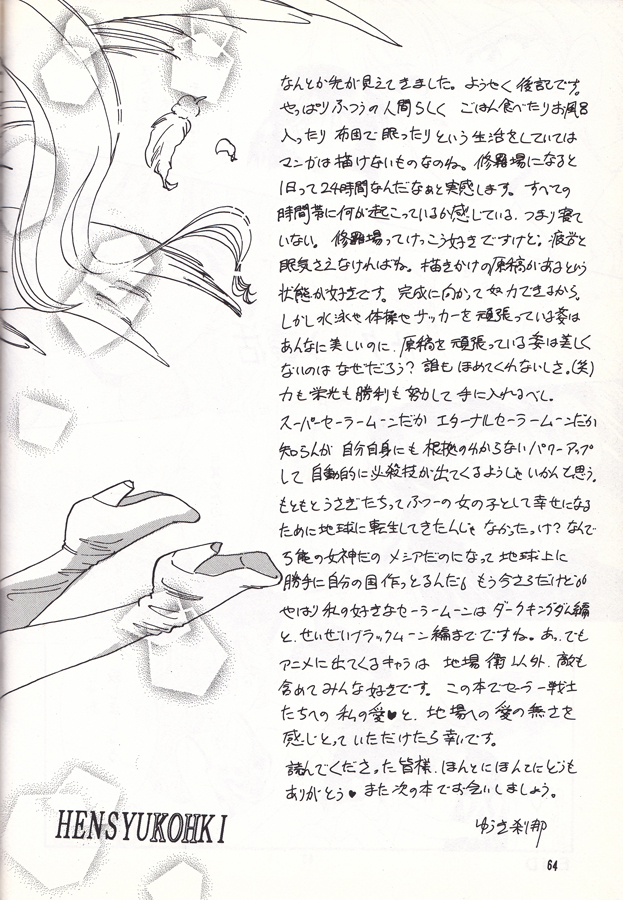 なんとか先が見えてきました。ようやく後記です。
やっぱりふつうの人間らしく ごはん食べたりお風呂
入ったり 布団で眠ったりという生活をしていては
マンガは描けないものなのね。修羅場になると
1日って24時間なんだなぁと実感します。すべての
時間帯に何が起こっているか感じている、つまり寝て
いない。修羅場ってけっこう好きですけど。疲労と
眠気さえなければね。描きかけの原稿があるという
状態が好きです。完成に向かって努力できるから。
しかし水泳や体操やサッカーを頑張っている姿は
あんなに美しいのに、原稿を頑張っている姿は美しく
ないのはなぜだろう？誰もほめてくれないしさ。(笑)
力も栄光も勝利も努力して手に入れるべし。
スーパーセーラームーンだか エターナルセーラームーンだか
知らんが 自分自身にも根拠の分からないパワーアップ
して 自動的に必殺技が出てくるようじゃいかんと思う。
もともとうさぎたちってふつーの女の子として幸せになる
ために地球に転生してきたんじゃなかったっけ？なんで
の女神だの メシアだのになって 地球上に
勝手に自分の国作っとるんだ。もう今さらだけど。
やはり私の好きなセーラームーンは ダークキングダム編
と、せいぜいブラックムーン編までですね。あっ、でも
アニメに出てくるキャラは 地場 衛以外、敵も
含めてみんな好きです。この本でセーラー戦士
たちへの 私の愛♥と、地場への愛の無さを
感じとっていただけたら幸いです。
読んでくださった皆様、ほんとにほんとにどうも
ありがとう♥ また次の本でお会いしましょう。
ゆうき刹那
HENSYUKOHKI
64